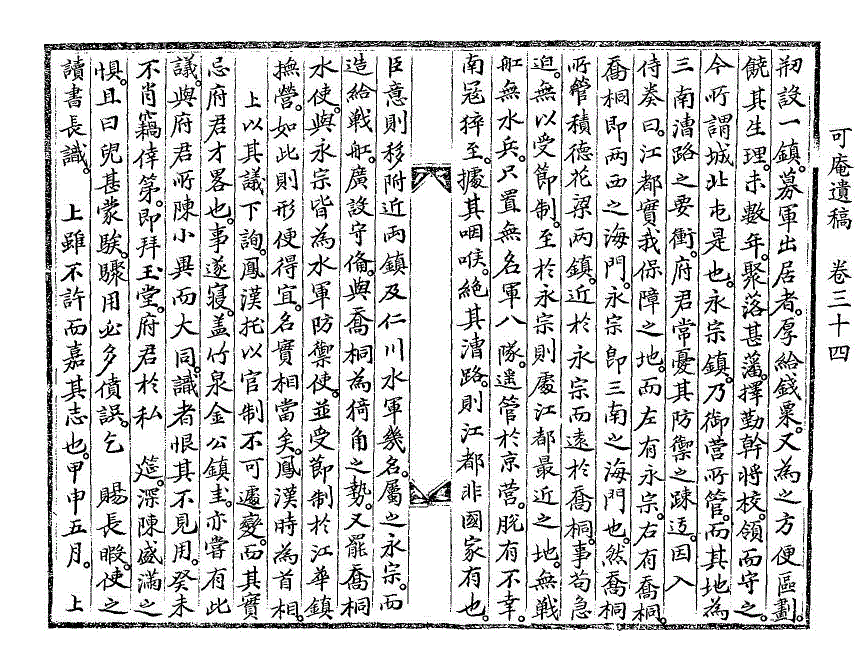 可庵遺稿　卷三十四
刱設一鎭。募軍出居者。厚給錢粟。又為之方便區劃。
饒其生理。未數年。聚落甚藩。擇勤幹將校。領而守之。
今所謂城北屯是也。永宗鎭。乃御營所管。而其地為
三南漕路之要衝。府君常憂其防禦之踈迃。因入
侍奏曰。江都實我保障之地。而左有永宗。右有喬桐。
喬桐即两西之海門。永宗即三南之海門也。然喬桐
所管積德花梁两鎭。近於永宗而遠於喬桐。事茍急
迫。無以受節制。至於永宗則處江都最近之地。無戰
舡無水兵。只置無名軍八隊。遥管於京營。脫有不幸。
南冦猝至。據其咽喉。絶其漕路。則江都非國家有也。
臣意則移附近两鎭及仁川水軍幾名。屬之永宗。而
造給戰舡。廣設守俻。與喬桐為猗角之勢。又罷喬桐
水使。與永宗皆為水軍防禦使。並受節制於江華鎭
撫營。如此則形便得宜。名實相當矣。鳳漢時為首相。
上以其議下詢。鳳漢托以官制不可遽變。而其實
忌府君才畧也。事遂寢。盖竹泉金公鎭圭。亦嘗有此
議。與府君所陳小異而大同。識者恨其不見用。癸未
不肖竊倖第。即拜玉堂。府君於私　筵。深陳盛滿之
惧。且曰兒甚蒙騃。驟用必多僨誤。乞　賜長暇。使之
讀書長識。　上雖不許而嘉其志也。甲申五月。　上